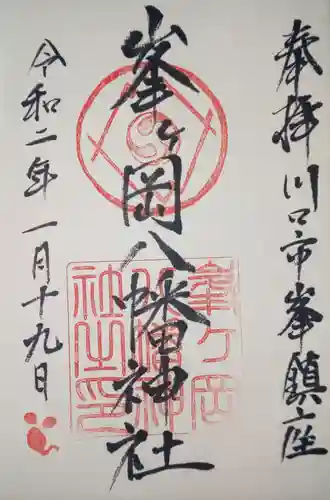 奉拝川口市峯鎮座
峯ヶ岡八幡神社
令和二年一月十九日
峯ヶ岡
八幡神
社之印